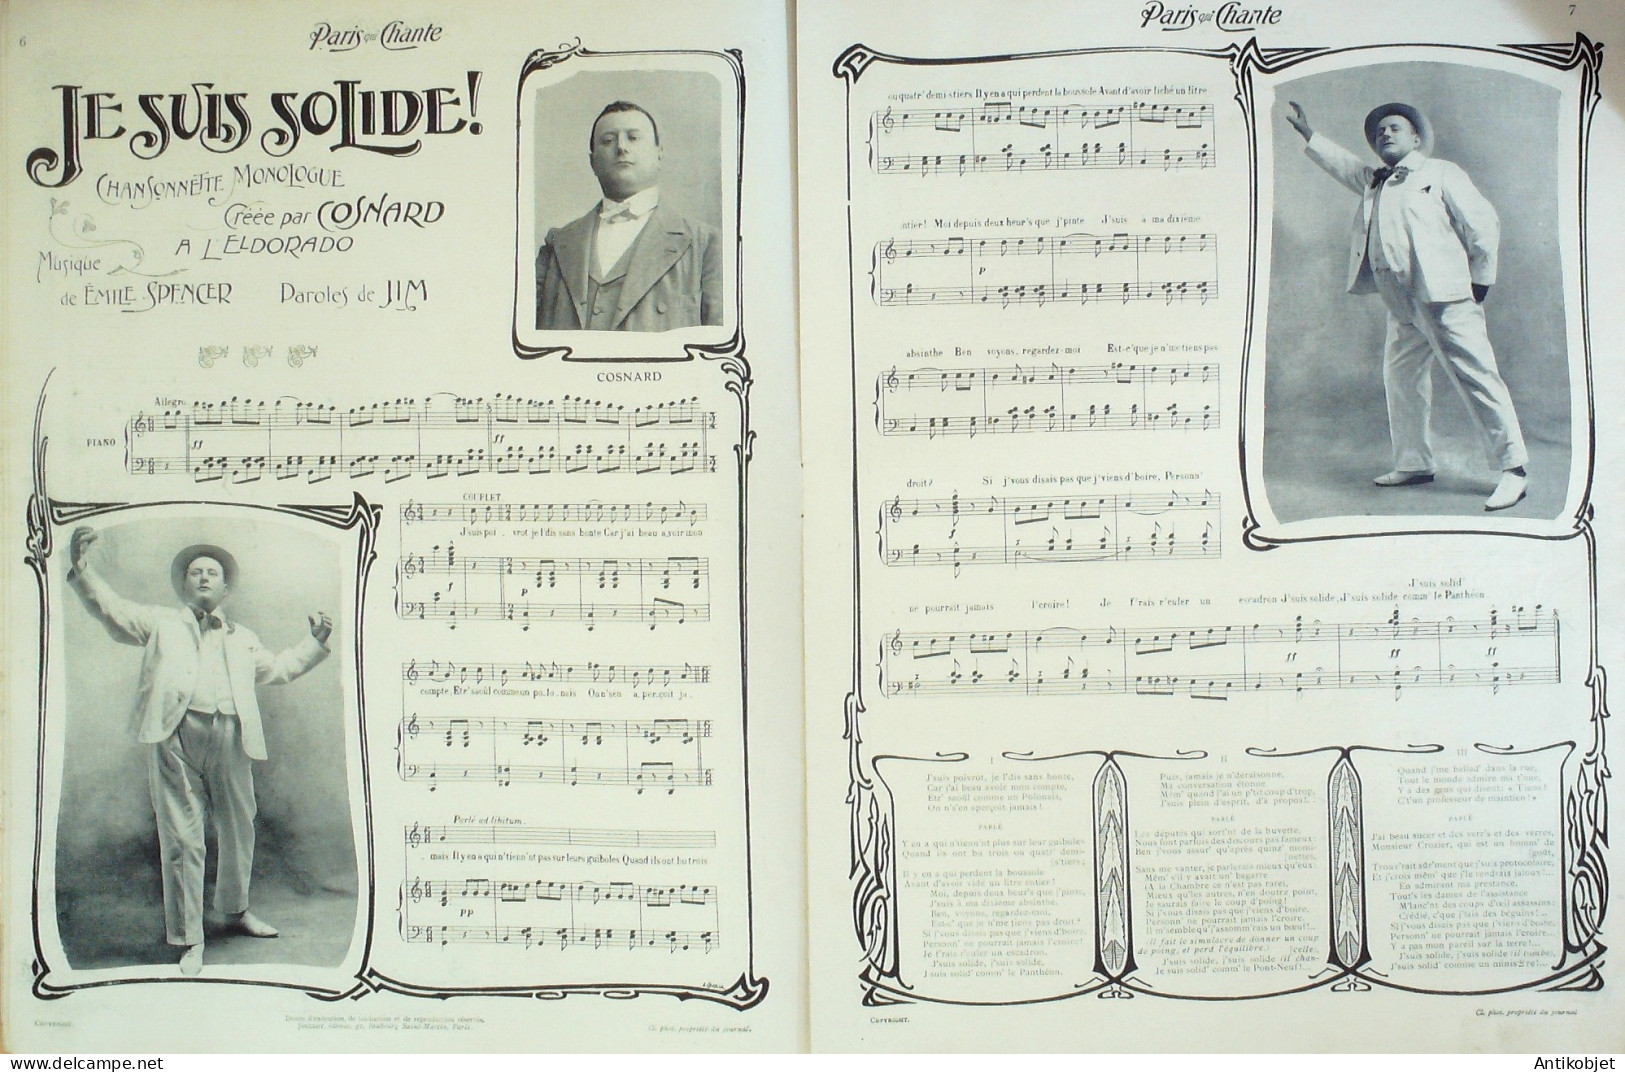 6
Paris qui Chante
JE SUIS SOLIDE!
CHANSONNETTE MONOLOGUE
Créée par COSNARD
A L'ELDORADO
Musique
de ÉMILE SPENCER
Paroles de JIM
COSNARD
Allegro
PIANO
ff
ff
COUPLET
J'suis poi . vrot je l'dis sans honte Car j'ai beau a.voir mon
f
p
compte, Etr' saoûl comme un po.lo.nais On n's'en a.perçoit ja.
Parlé ad libitum.
. mais Il y en a qui n'tienn'nt pas sur leurs guiboles Quand ils ont bu trois
pp
COPYRIGHT.
Droits d'exécution, de traduction et de reproduction réservés.
Cl. phot. propriété du journal.
Paris qui Chante
7
ou quatr' demi-stiers Il y en a qui perdent la boussole Avant d'avoir liché un litre
entier! Moi depuis deux heur's que j'pinte J'suis à ma dixième
p
absinthe Ben voyons, regardez-moi Est-c'que je n'me tiens pas
droit? Si j'vous disais pas que j'viens d'boire, Personn'
f
ne pourrait jamais l'croire! Je f'rais r'culer un escadron J'suis solide, J'suis solide comm' le Panthéon.
J'suis solid'
ff
ff
ff
I
J'suis poivrot, je l'dis sans honte,
Car j'ai beau avoir mon compte,
Etr' saoûl comme un Polonais,
On n's'en aperçoit jamais!
PARLÉ
Y en a qui n'tienn'nt plus sur leur guiboles
Quand ils ont bu trois ou quatr' demi-
[s'tiers;
Il y en a qui perdent la boussole
Avant d'avoir vidé un litre entier!
Moi, depuis deux heur's que j'pinte,
J'suis à ma dixième absinthe,
Ben, voyons, regardez-moi,
Est-c' que je n'me tiens pas droit?
Si j'vous disais pas que j'viens d'boire,
Personn' ne pourrait jamais l'croire!
Je f'rais r'culer un escadron,
J'suis solide, j'suis solide,
J'suis solid' comm' le Panthéon.
II
Puis, jamais je n'déraisonne,
Ma conversation étonne
Mêm' quand j'ai un p'tit coup d'trop,
J'suis plein d'esprit, d'à propos!...
PARLÉ
Les députés qui sort'nt de la buvette,
Nous font parfois des discours pas fameux:
Ben j'vous assur' qu'après quinz' momi-
[nettes,
Sans me vanter, je parlerais mieux qu'eux.
Mêm' s'il y avait un' bagarre
(A la Chambre ce n'est pas rare),
Mieux qu'les autres, n'en doutez point,
Je saurais faire le coup d'poing!
Si j'vous disais pas que j'viens d'boire,
Personn' ne pourrait jamais l'croire,
Il m'semble qu'j'assomm'rais un bœuf!...
(il fait le simulacre de donner un coup
de poing, et perd l'équilibre.)
J'suis solide, j'suis solide (il chan-
[celle.
Je suis solid' comm' le Pont-Neuf!...
III
Quand j'me ballad' dans la rue,
Tout le monde admire ma t'nue,
Y a des gens qui disent: « Tiens!
C't'un professeur de maintien! »
PARLÉ
J'ai beau sucer et des verr's et des verres,
Monsieur Crozier, qui est un homm' de
[goût,
Trouv'rait sûr'ment que j'suis protocolaire,
Et j'crois mêm' que j'le rendrais jaloux!...
En admirant ma prestance,
Tout's les dames de l'assistance
M'lanc'nt des coups d'œil assassins:
Crédié, c'que j'fais des béguins!...
Si j'vous disais pas que j'viens d'boire,
Personn' ne pourrait jamais l'croire...
Y a pas mon pareil sur la terre!...
J'suis solide, j'suis solide (il tombe),
J'suis solid' comme un ministre!...
COPYRIGHT.
Cl. phot. propriété du journal
Antikobjet